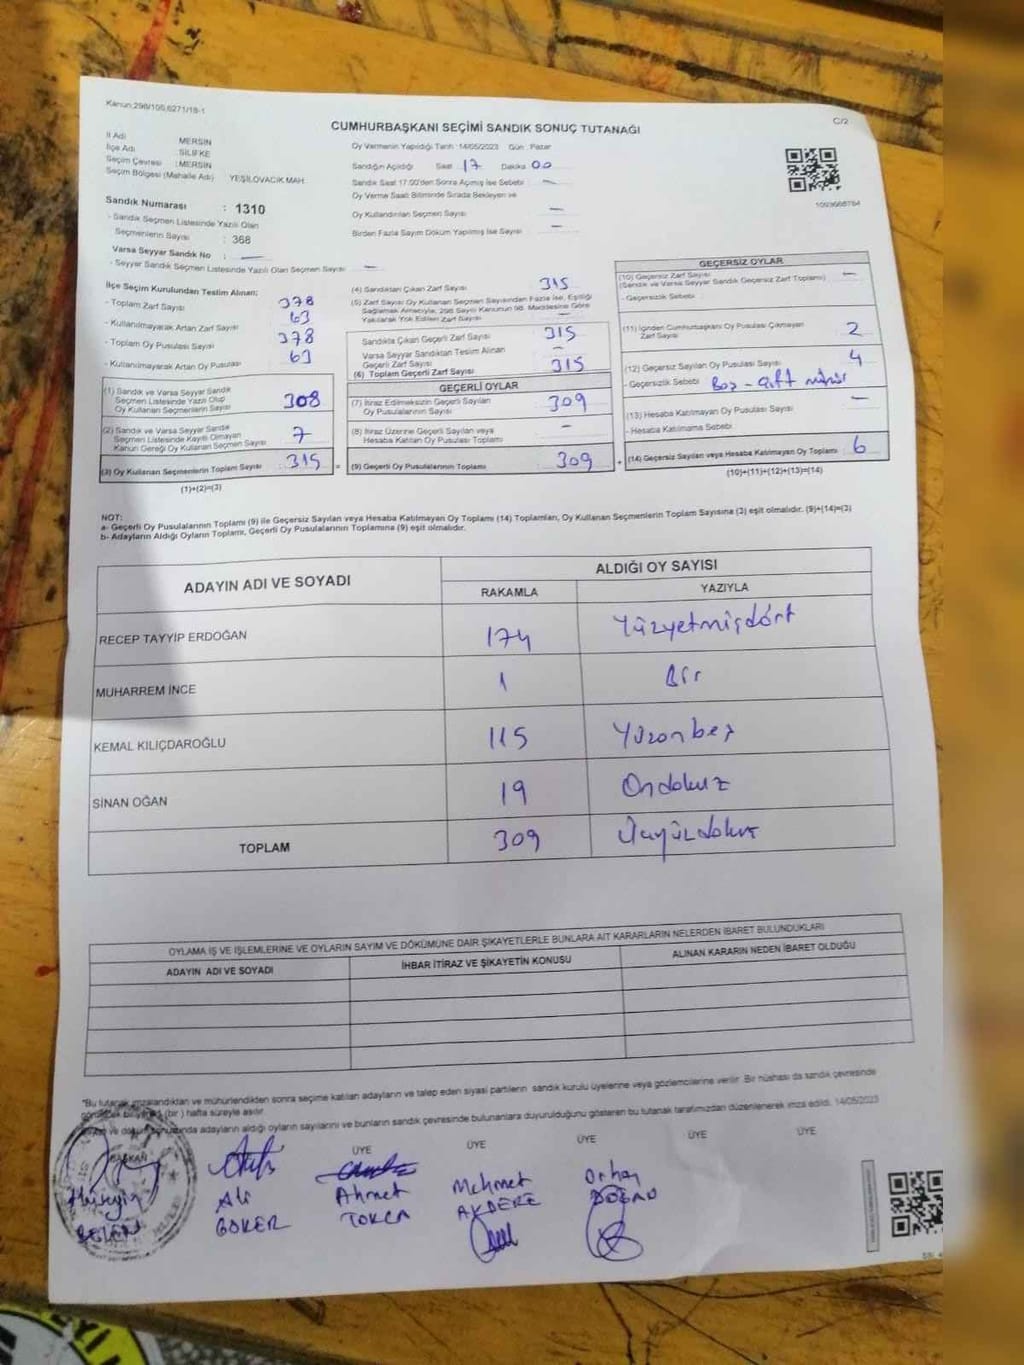 Kanun:298/105,6271/18-1
C/2
CUMHURBAŞKANI SEÇİMİ SANDIK SONUÇ TUTANAĞI
İl Adı : MERSİN
İlçe Adı : SİLİFKE
Seçim Çevresi : MERSİN
Seçim Bölgesi (Mahalle Adı) YEŞİLOVACIK MAH.
Oy Vermenin Yapıldığı Tarih :14/05/2023 Gün : Pazar
Sandığın Açıldığı Saat 17 Dakika 00
Sandık Saat 17:00'den Sonra Açılmış İse Sebebi —
Oy Verme Saati Bitiminde Sırada Bekleyen ve
Oy Kullandırılan Seçmen Sayısı —
Birden Fazla Sayım Döküm Yapılmış İse Sayısı —
1093668784
Sandık Numarası : 1310
- Sandık Seçmen Listesinde Yazılı Olan
Seçmenlerin Sayısı : 368
Varsa Seyyar Sandık No : —
- Seyyar Sandık Seçmen Listesinde Yazılı Olan Seçmen Sayısı : —
İlçe Seçim Kurulundan Teslim Alınan;
- Toplam Zarf Sayısı 378
- Kullanılmayarak Artan Zarf Sayısı 63
- Toplam Oy Pusulası Sayısı 378
- Kullanılmayarak Artan Oy Pusulası 63
(1) Sandık ve Varsa Seyyar Sandık
Seçmen Listesinde Yazılı Olup
Oy Kullanan Seçmenlerin Sayısı 308
(2) Sandık ve Varsa Seyyar Sandık
Seçmen Listesinde Kayıtlı Olmayan
Kanun Gereği Oy Kullanan Seçmen Sayısı 7
(3) Oy Kullanan Seçmenlerin Toplam Sayısı : 315 =
(1)+(2)=(3)
(4) Sandıktan Çıkan Zarf Sayısı 315
(5) Zarf Sayısı Oy Kullanan Seçmen Sayısından Fazla İse, Eşitliği
Sağlamak Amacıyla, 298 Sayılı Kanunun 98. Maddesine Göre
Yakılarak Yok Edilen Zarf Sayısı —
Sandıkta Çıkan Geçerli Zarf Sayısı 315
Varsa Seyyar Sandıktan Teslim Alınan
Geçerli Zarf Sayısı —
(6) Toplam Geçerli Zarf Sayısı 315
GEÇERLİ OYLAR
(7) İtiraz Edilmeksizin Geçerli Sayılan
Oy Pusulalarının Sayısı 309
(8) İtiraz Üzerine Geçerli Sayılan veya
Hesaba Katılan Oy Pusulası Toplamı —
(9) Geçerli Oy Pusulalarının Toplamı 309 +
GEÇERSİZ OYLAR
(10) Geçersiz Zarf Sayısı
(Sandık ve Varsa Seyyar Sandık Geçersiz Zarf Toplamı) —
- Geçersizlik Sebebi
(11) İçinden Cumhurbaşkanı Oy Pusulası Çıkmayan
Zarf Sayısı 2
(12) Geçersiz Sayılan Oy Pusulası Sayısı 4
- Geçersizlik Sebebi Boş - Çift mührü
(13) Hesaba Katılmayan Oy Pusulası Sayısı —
- Hesaba Katılmama Sebebi
(14) Geçersiz Sayılan veya Hesaba Katılmayan Oy Toplamı 6
(10)+(11)+(12)+(13)=(14)
NOT:
a- Geçerli Oy Pusulalarının Toplamı (9) ile Geçersiz Sayılan veya Hesaba Katılmayan Oy Toplamı (14) Toplamları, Oy Kullanan Seçmenlerin Toplam Sayısına (3) eşit olmalıdır. (9)+(14)=(3)
b- Adayların Aldığı Oyların Toplamı, Geçerli Oy Pusulalarının Toplamına (9) eşit olmalıdır.
ADAYIN ADI VE SOYADI
ALDIĞI OY SAYISI
RAKAMLA YAZIYLA
RECEP TAYYİP ERDOĞAN 174 Yüzyetmişdört
MUHARREM İNCE 1 Bir
KEMAL KILIÇDAROĞLU 115 Yüzonbeş
SİNAN OĞAN 19 Ondokuz
TOPLAM 309 Üçyüzdokuz
OYLAMA İŞ VE İŞLEMLERİNE VE OYLARIN SAYIM VE DÖKÜMÜNE DAİR ŞİKAYETLERLE BUNLARA AİT KARARLARIN NELERDEN İBARET BULUNDUKLARI
ADAYIN ADI VE SOYADI İHBAR İTİRAZ VE ŞİKAYETİN KONUSU ALINAN KARARIN NEDEN İBARET OLDUĞU
"Bu tutanak imzalandıktan ve mühürlendikten sonra seçime katılan adayların ve talep eden siyasi partilerin sandık kurulu üyelerine veya gözlemcilerine verilir. Bir nüshası da sandık çevresinde
görülecek bir yere (bir) hafta süreyle asılır.
ve döküm sonucunda adayların aldığı oyların sayılarını ve bunların sandık çevresinde bulunanlara duyurulduğunu gösteren bu tutanak tarafımızdan düzenlenerek imza edildi. 14/05/2023
BAŞKAN ÜYE ÜYE ÜYE ÜYE ÜYE
Hüseyin Ali Ahmet Mehmet Orhan
GÖKER TOKCA AKDERE DOĞAN